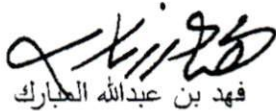 فهد بن عبدالله المبارك